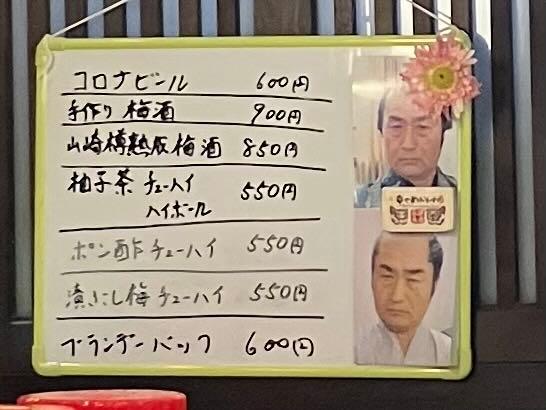 コロナビール 600円
手作り梅酒 900円
山崎樽熟成梅酒 850円
柚子茶 チューハイ 550円
ハイボール
ポン酢チューハイ 550円
漬こし梅チューハイ 550円
ブランデーバック 600円